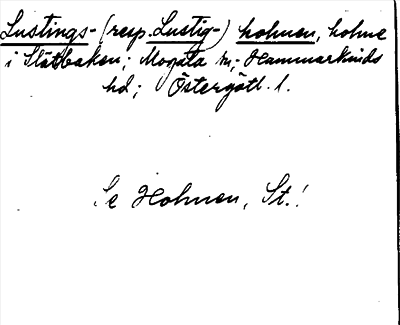 Lustings- (resp. Lustig-) holmen, holme
i Slätbaken; Mogata sn; Hammarkinds
hd; Östergötl. l.
Se Holmen, St.!